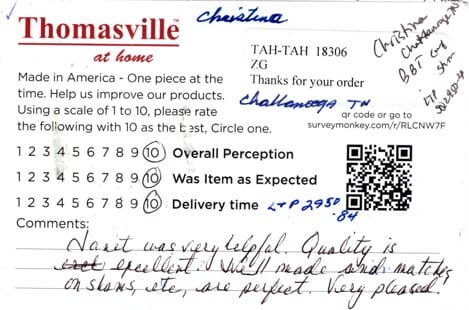 Christina
Thomasville™
at home
TAH-TAH 18306
ZG
Thanks for your order
Christina
Chattanooga TN
BBT
Made in America - One piece at the
time. Help us improve our products.
Using a scale of 1 to 10, please rate
the following with 10 as the best, Circle one.
Chattanooga TN
qr code or go to
surveymonkey.com/r/RLCNW7F
1 2 3 4 5 6 7 8 9 10 Overall Perception
1 2 3 4 5 6 7 8 9 10 Was Item as Expected
1 2 3 4 5 6 7 8 9 10 Delivery time LTP 2950
84
Comments:
Janit was very helpful. Quality is
excellent. Well made and matches
on shams, etc, are perfect. Very pleased.